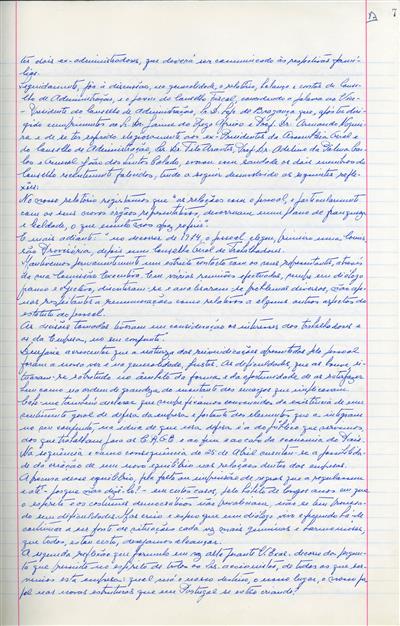 7
tes dois ex-administradores, que deverá ser comunicado às respectivas famí-
lias.
Seguidamente, pôs à discussão, na generalidade, o relatório, balanço e contas do Conse-
lho de Administração, e o parecer do Conselho Fiscal, concedendo a palavra ao Vice-
-Presidente do Conselho de Administração, de Bragança que, após ter diri-
gido cumprimentos ao Sr. Dr. Jaime do Rego Afreixo e Prof. Dr. Armando
ra, e de se ter referido elogiosamente aos ex-Presidentes da Assembleia Geral e
do Conselho de Administração, Prof. Dr. Adelino da Palma Car-
los e João dos Santos, evocou com saudade os dois membros do
Conselho recentemente falecidos, tendo a seguir desenvolvido as seguintes refle-
xões:
No nosso relatório registamos que "as relações com o pessoal, e particularmente
com os seus novos órgãos representativos, decorreram num plano de franqueza
e lealdade, o que muito nos apraz referir".
E mais adiante: - no decorrer de 1974, o pessoal elegeu, primeiro uma Comis-
são Provisória, depois um Conselho Geral de Trabalhadores.
"Mantivemos permanentemente um estreito contacto com os seus representantes, através
da sua Comissão Executiva. Em várias reuniões efectuadas, sempre em diálogo
franco e objectivo, discutiram-se e analisaram-se problemas diversos, não ape-
nas respeitantes a remunerações como relativos a alguns outros aspectos do
estatuto do pessoal.
As decisões tomadas tiveram em consideração os interesses dos trabalhadores e
os da Empresa, no seu conjunto.
acrescentar que a natureza das reivindicações apresentadas pelo pessoal
foram a nosso ver e na generalidade, justas. As dificuldades, que as houve, si-
tuaram-se sobretudo no âmbito da forma e da oportunidade de as satisfazer
bem como na ordem de grandeza do montante dos encargos que implicavam.
Cabe-me também declarar que sempre ficámos convencidos da existência de um
sentimento geral de defesa da empresa, e portanto dos elementos que a integram
no seu conjunto, na ideia de que essa defesa é a do público que servimos,
dos que trabalham para as C.R.G.E. e ao fim e ao cabo da economia do País.
Na sequência e como consequência do 25 de Abril aventou-se a possibilida-
de da criação de um novo equilíbrio nas relações dentro das empresas.
A procura desse equilíbrio, pela falta ou imprecisão de regras que o regulassem
e até - porque não dizê-lo? - em certos casos, pelo hábito de longos anos em que
o espírito e os costumes democráticos não prevaleceram, não se tem processa-
do sem dificuldades. Mas creio e espero que um diálogo vivo e fecundo há-de
continuar a ser fonte de relações cada vez mais genuínas e harmoniosas,
que todos, estou certo, desejamos alcançar.
A segunda reflexão que formulo em voz alta perante V. Exas. decorre da pergun-
ta que presumo no espírito de todos os Srs. accionistas, de todos os que ser-
vimos esta empresa: qual irá o nosso destino, o nosso lugar, o nosso pa-
pel nas novas estruturas que em Portugal se estão criando?